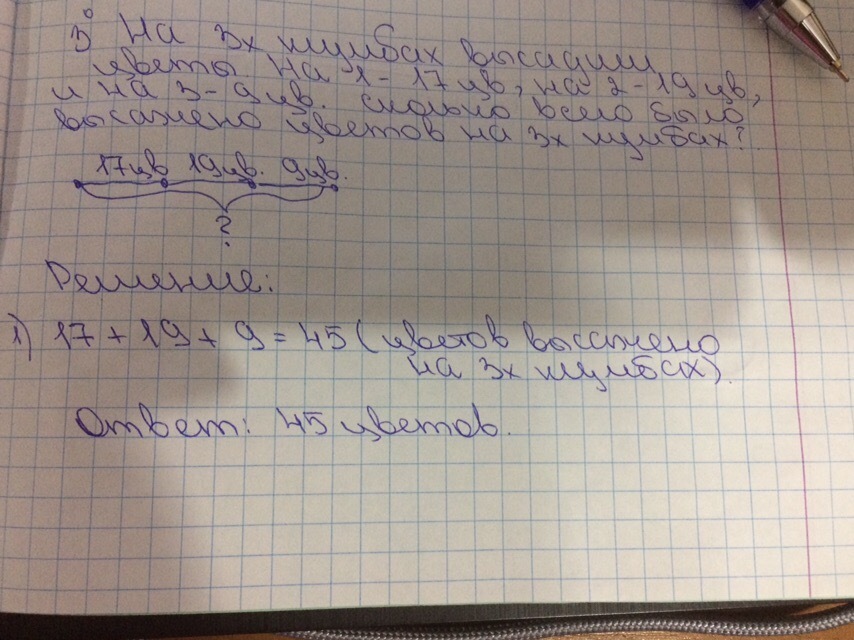 3° На 3х клумбах высадили
цветы. На 1 - 17 цв, на 2 - 19 цв,
и на 3 - 9 цв. сколько всего было
высажено цветов на 3х клумбах?
17цв 19цв. 9цв.
?
Решение:
1) 17 + 19 + 9 = 45 (цветов высажено
на 3х клумбах).
Ответ: 45 цветов.